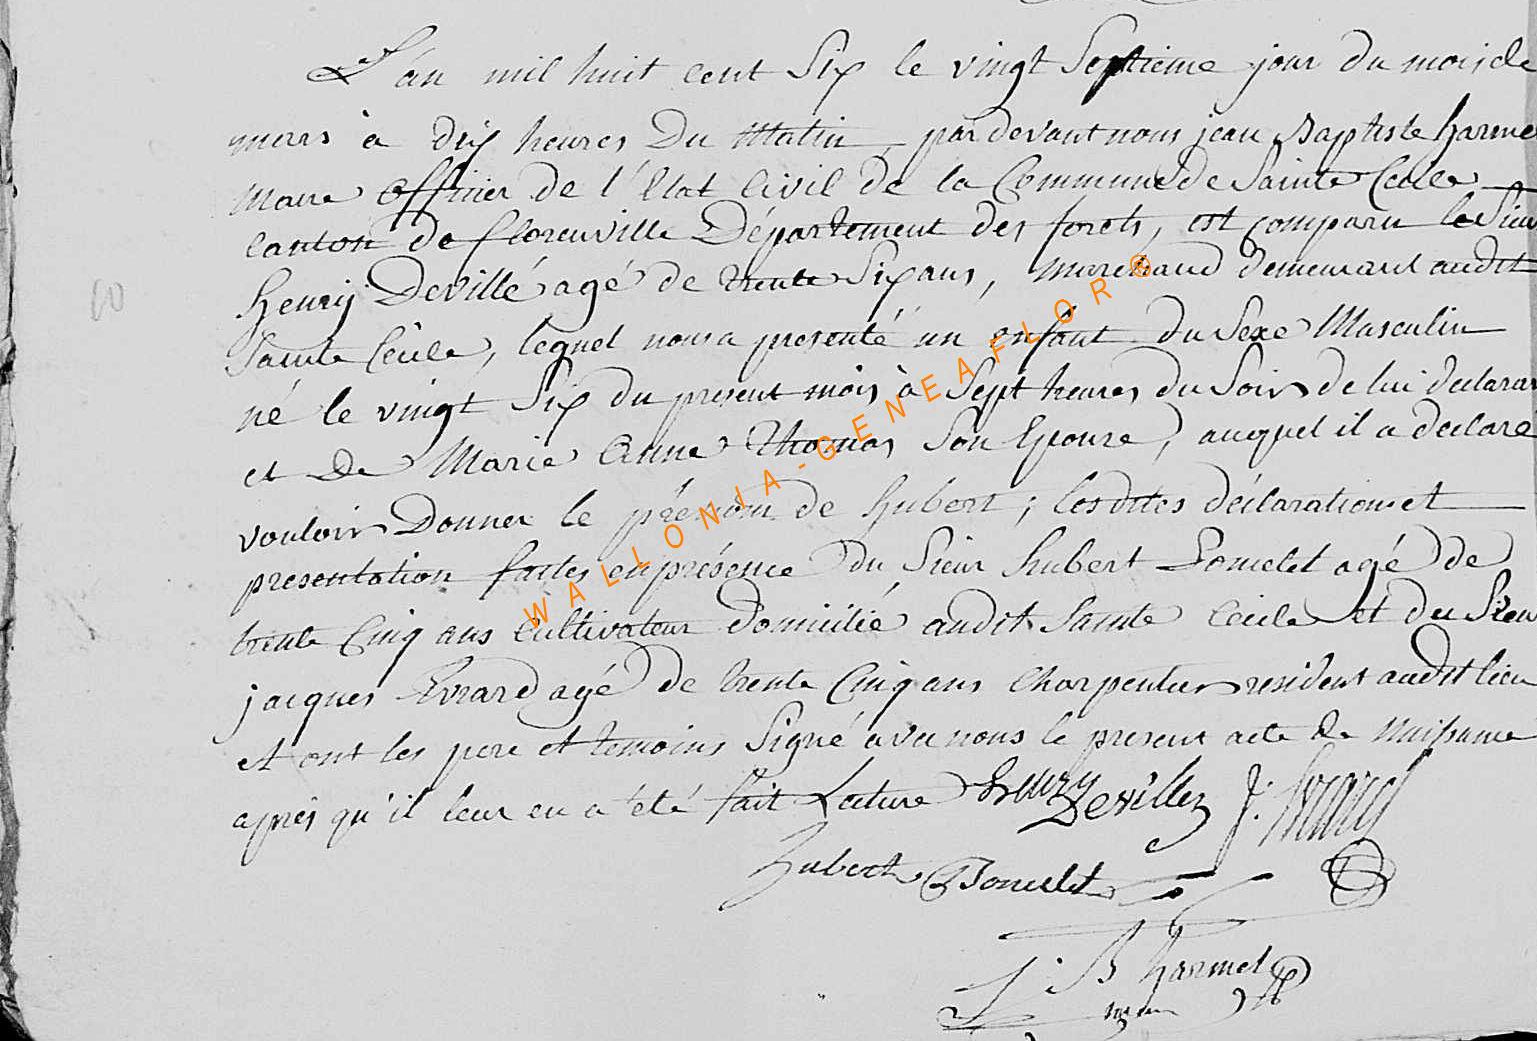 L'an mil huit cent Six le vingt Septieme jour du mois de
mars à dix heures Du Matin, par devant nous jean Baptiste harme
Maire Officier de l'Etat Civil de la Commune de Sainte Cecile
Canton de florenville Département des forets, est comparu le Sieur
henry Devillé agé de trente Six ans, marchand demeurant audit
Sainte Cécile, lequel nous a presenté un enfant du Sexe Masculin
né le vingt Six du present mois à Sept heures du Soir de lui declarant
et De Marie Anne Thomas Son Epouse, auquel il a declaré
vouloir Donner le prénom de hubert; lesdites déclaration et
presentation faites en présence du Sieur hubert Ponselet agé de
trente Cinq ans Cultivateur Domicilié audit Sainte Cecile et du Sieur
jacques Evrard agé de trente Cinq ans Charpentier resident audit lieu
et ont les pere et temoins Signé avec nous le present acte de naissance
après qu'il leur en a été fait Lecture henry Devillez J: Evrard
hubert Ponselet
J: B harmel
maire
60
WALLONIA-GENEAFLOR®